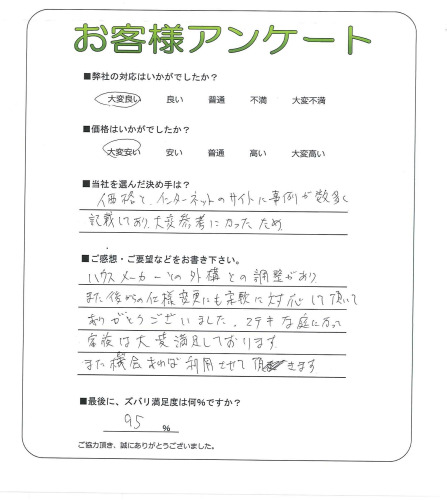 お客様アンケート
■弊社の対応はいかがでしたか?
大変良い 良い 普通 不満 大変不満
■価格はいかがでしたか?
大変安い 安い 普通 高い 大変高い
■当社を選んだ決め手は?
価格と、インターネットのサイトに事例が数多く
記載しており、大変参考になったため
■ご感想・ご要望などをお書き下さい。
ハウスメーカーとの外構との調整があり
また後からの仕様変更にも柔軟に対応して頂いて
ありがとうございました。ステキな庭になって
家族は大変満足しております
また機会あれば利用させて頂きます
■最後に、ズバリ満足度は何%ですか?
95 %
ご協力頂き、誠にありがとうございました。